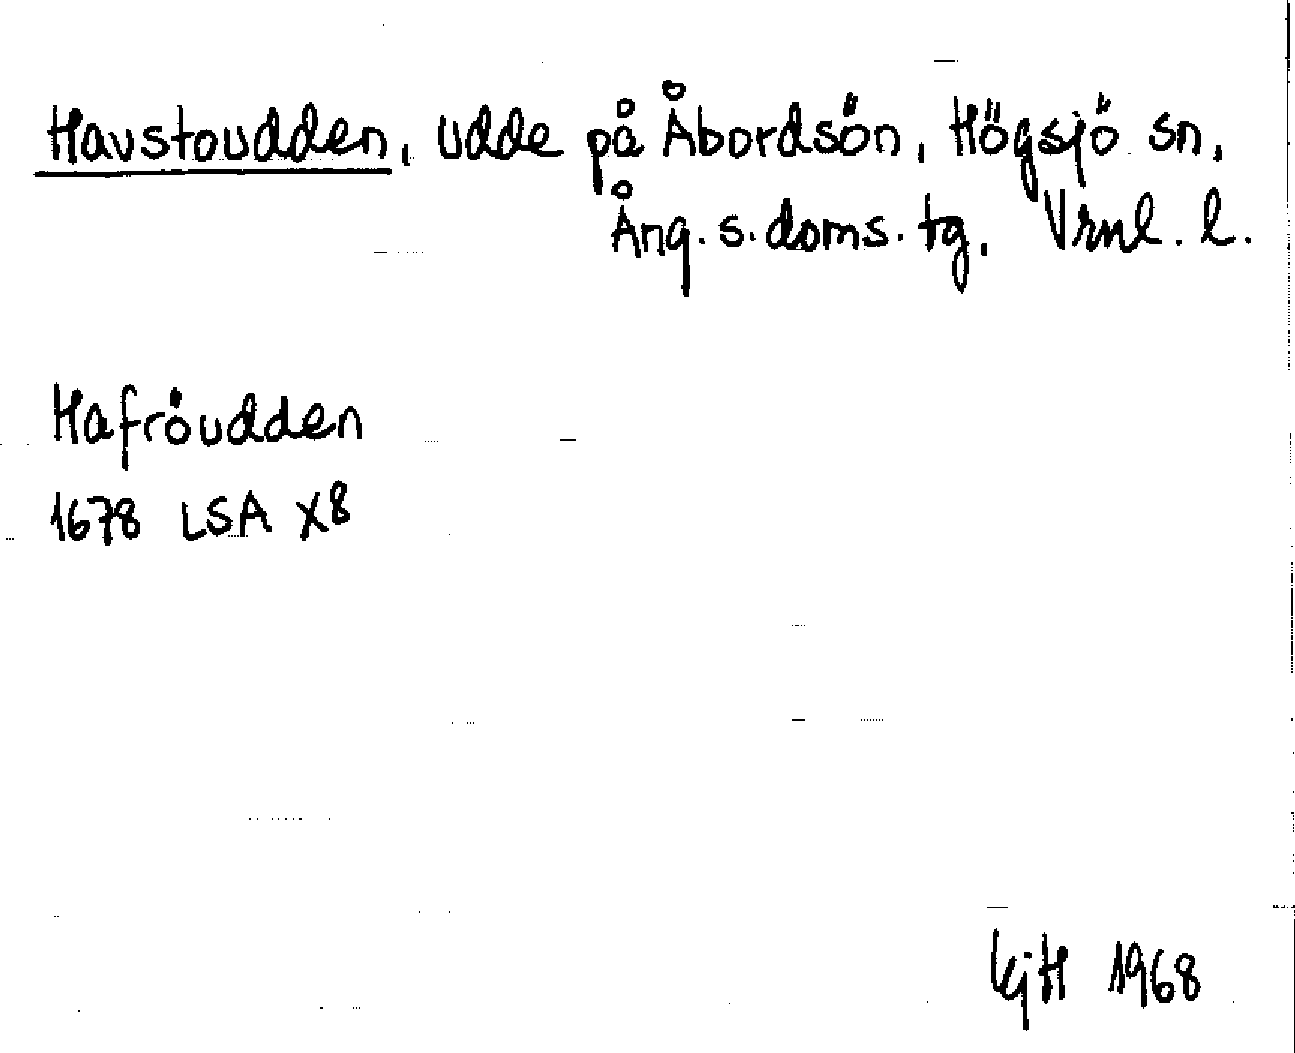 Havstoudden, udde på Åbordsön, Högsjö sn,
Ång. s. doms. tg. Vrnl. l.
Hafröudden
1678 LSA X8
KjH 1968